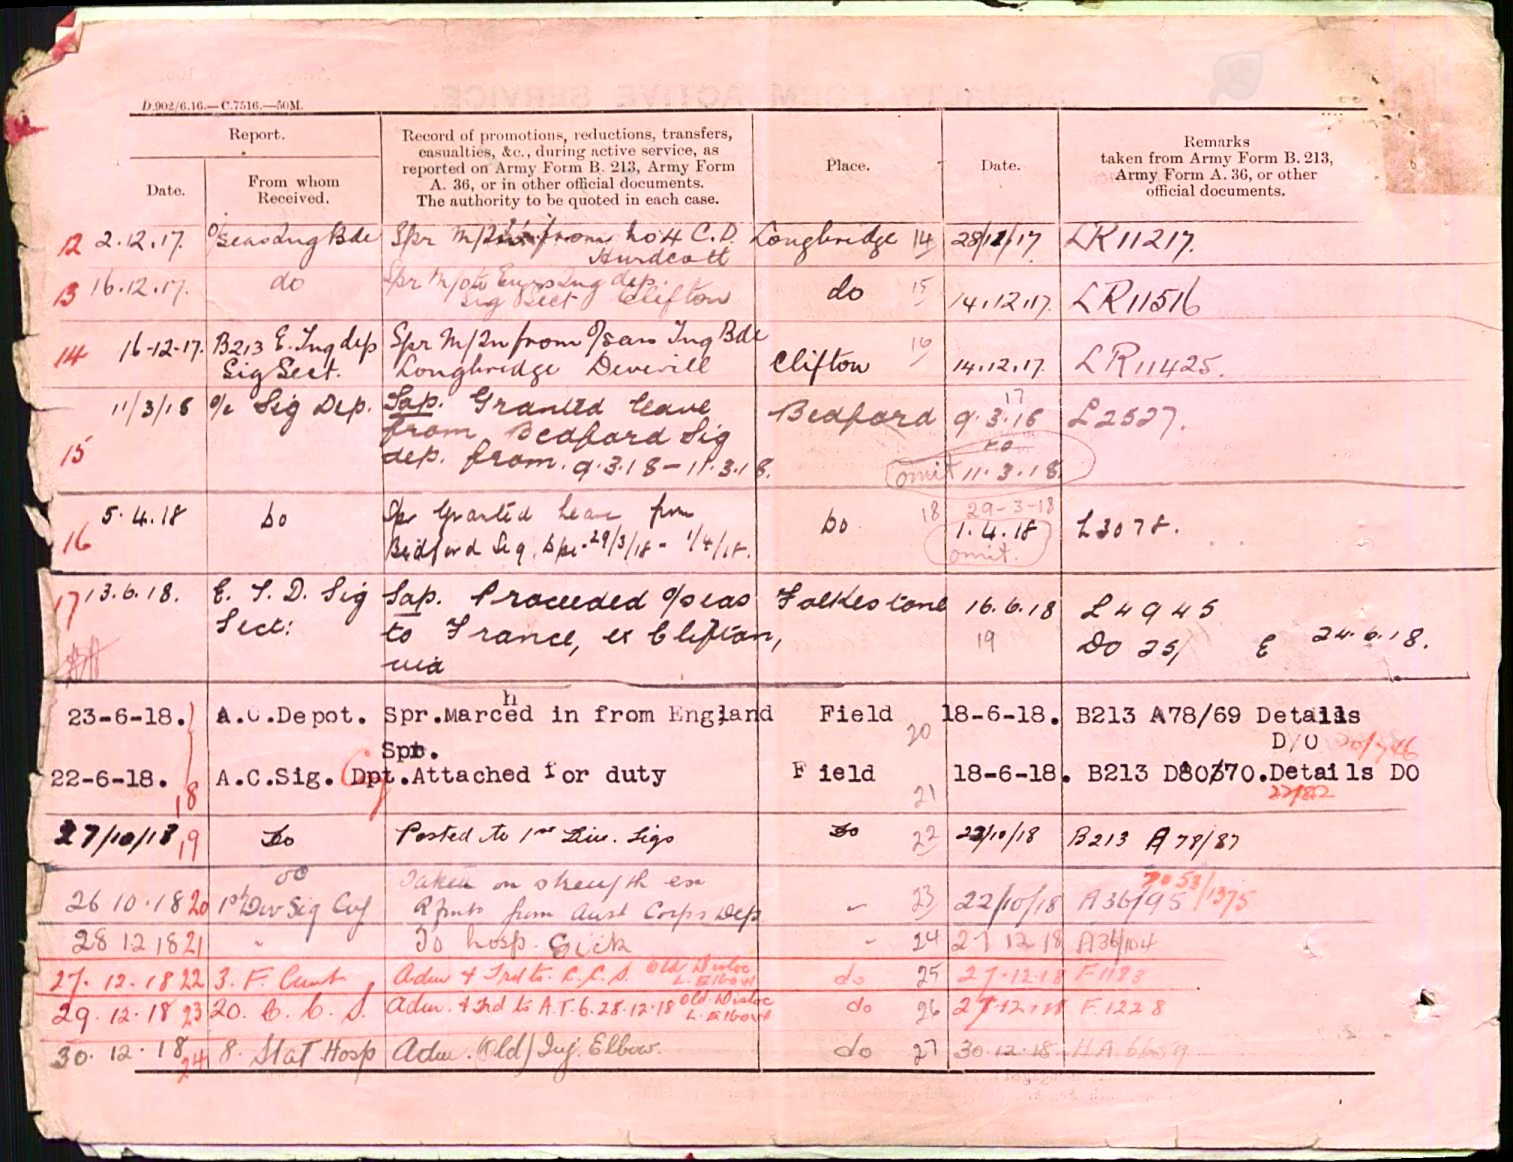 D.902/6.16.—C.7516.—50M.
Report.
Date.
From whom
Received.
Record of promotions, reductions, transfers,
casualties, &c., during active service, as
reported on Army Form B. 213, Army Form
A. 36, or in other official documents.
The authority to be quoted in each case.
Place.
Date.
Remarks
taken from Army Form B. 213,
Army Form A. 36, or other
official documents.
12 2.12.17. O/seas Ing Bde Spr M/In from No 4 C.D. Longbridge 14 28/11/17 LR11217.
Hurdcott
13 16.12.17. do Spr M/ote Ing dep. do 15 14.12.17. LR11516
Sig Sect Clifton
14 16-12-17. B213 E. Ing dep Spr M/In from O/seas Ing Bde Clifton 16 14.12.17. LR11425.
Sig Sect. Longbridge Deverill
15 11/3/18 O/c Sig Dep. Sap. Granted leave Bedford 17 9.3.18 L2527.
from Bedford Sig to
dep. from. 9.3.18 - 11.3.18. omit 11.3.18
16 5.4.18 Do Spr Granted leave from Do 18 29-3-18 L3078.
Bedford Sig. Dpe. 29/3/18 - 1/4/18. 1.4.18
omit.
17 13.6.18. E. T. D. Sig Sap. Proceeded O/seas Folkestone 16.6.18 L4945
Sect: to France, ex Clifton, 19 DO 25/ E 24.6.18.
via
23-6-18. A.C.Depot. Spr.Marched in from England Field 20 18-6-18. B213 A78/69 Details
D/O
Spr.
22-6-18. A.C.Sig. Dpt.Attached for duty Field 21 18-6-18. B213 D80/70.Details DO
18
27/10/18 19 Do Posted to 1st Div. Sigs Do 22 22/10/18 B213 A 78/87
26 10.18 20 1st Div Sig Coy Taken on strength ex 23 22/10/18 A36/95 DO 53/1375
Rfmts from Aust Corps Dep
28 12 18 21 " To hosp. Sick 24 27 12 18 A36/104
27. 12. 18 22 3. F. Amb Adm & Trd to. C.C.S. Old Disloc do 25 27.12.18 F1183
L. Elbow
29. 12. 18 23 20. C. C. S. Adm. & Trd to A.T.6.28.12.18 Old Disloc do 26 27.12.18 F.1228
L. Elbow
30. 12. 18 24 8. Stat Hosp Adm. (Old) Inj. Elbow. do 27 30.12.18